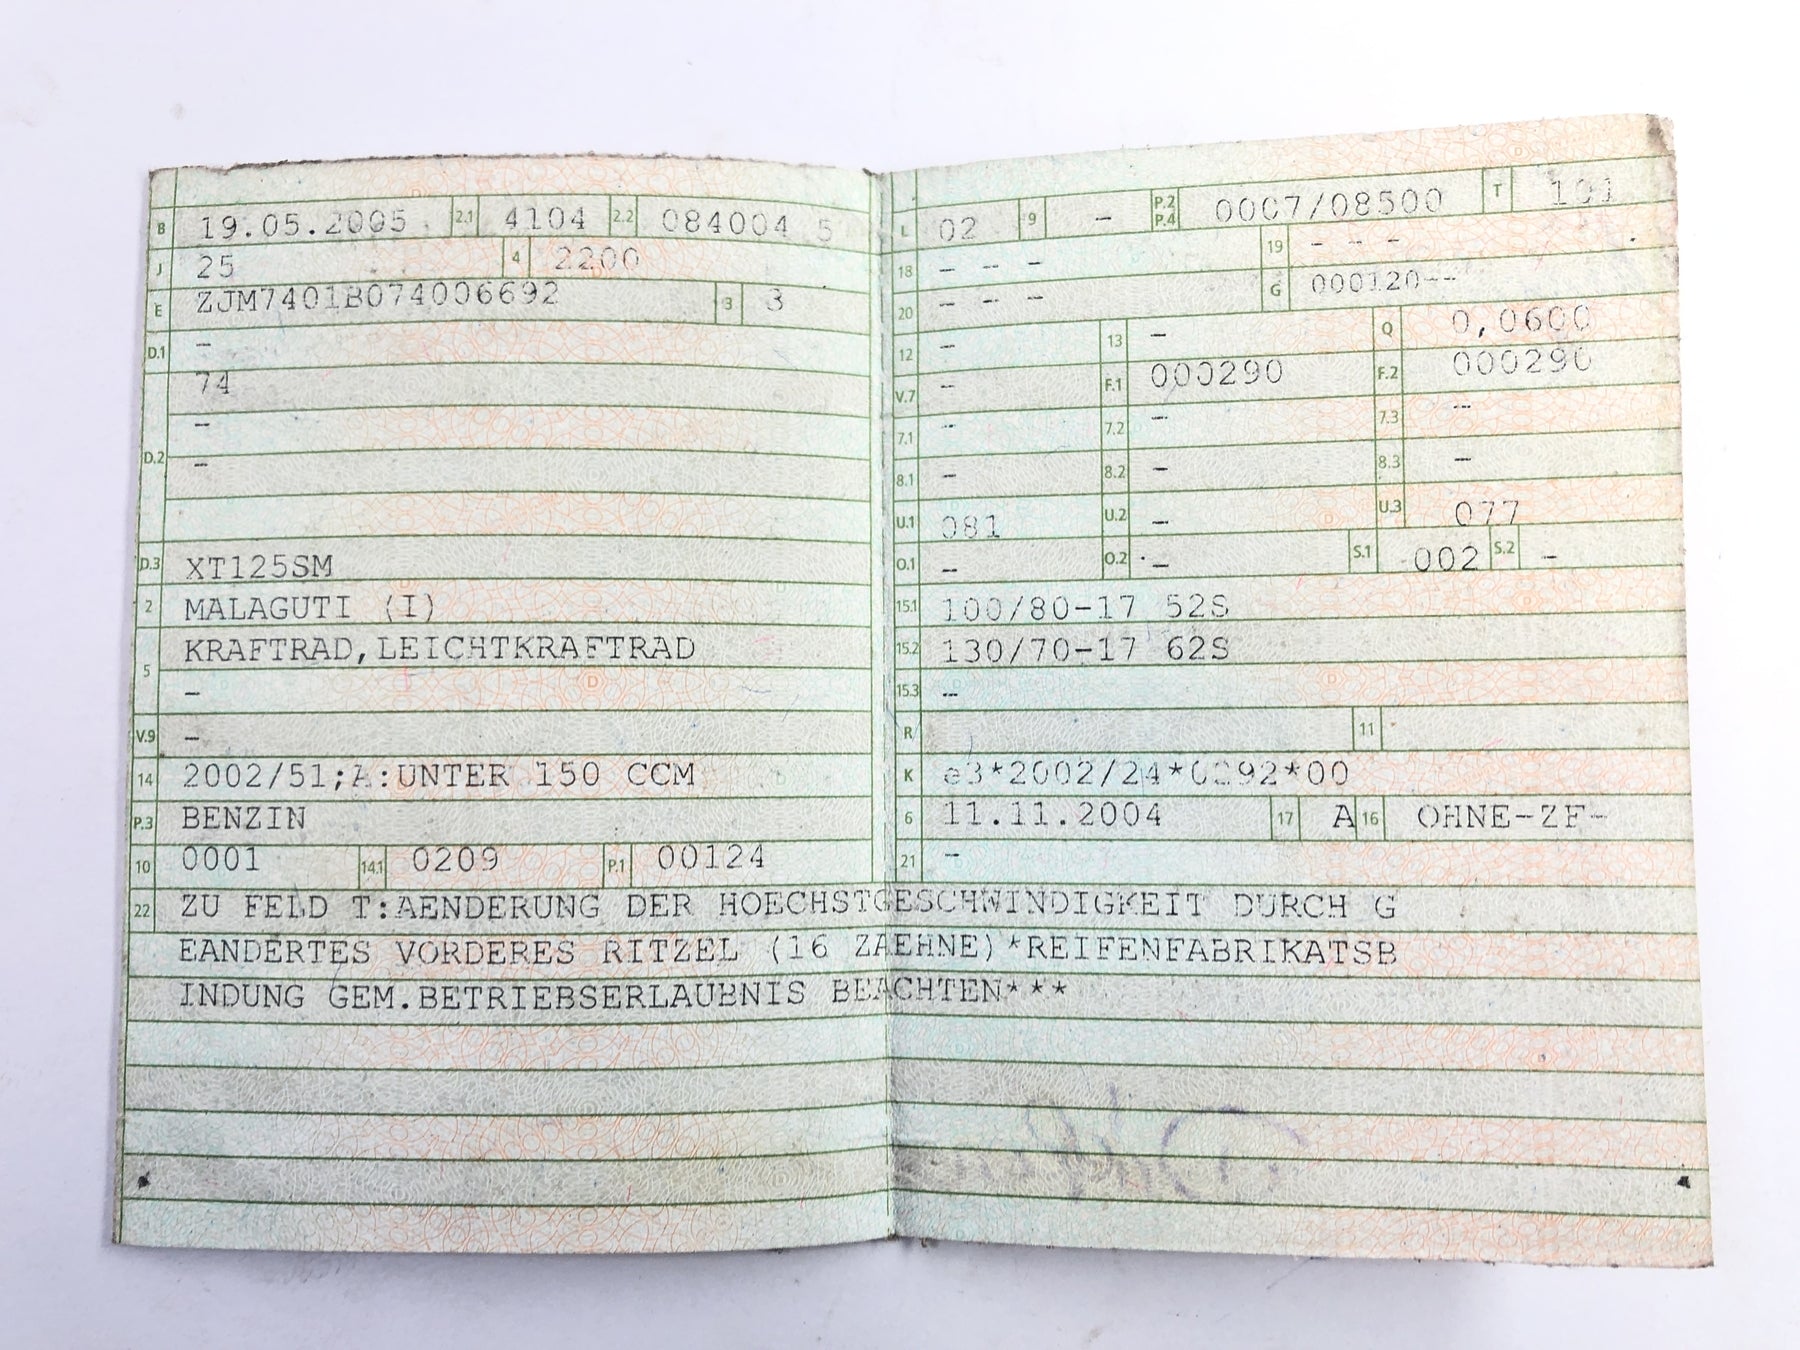 B 19.05.2005 2.1 4104 2.2 084004 5
J 25 4 2200
E ZJM7401B074006692 3 3
D.1 -
74
-
D.2 -
D.3 XT125SM
2 MALAGUTI (I)
5 KRAFTRAD,LEICHTKRAFTRAD
-
V.9 -
14 2002/51;A:UNTER 150 CCM
P.3 BENZIN
10 0001 14.1 0209 P.1 00124
L 02 9 - P.2 P.4 0007/08500 T 101
18 - - - 19 - - -
20 - - - G 000120--
12 - 13 - Q 0,0600
V.7 - F.1 000290 F.2 000290
7.1 - 7.2 - 7.3 -
8.1 - 8.2 - 8.3 -
U.1 081 U.2 - U.3 077
O.1 - O.2 - S.1 002 S.2 -
15.1 100/80-17 52S
15.2 130/70-17 62S
15.3 -
R 11
K e3*2002/24*0292*00
6 11.11.2004 17 A 16 OHNE-ZF-
21 -
22 ZU FELD T:AENDERUNG DER HOECHSTGESCHWINDIGKEIT DURCH G
EANDERTES VORDERES RITZEL (16 ZAEHNE)*REIFENFABRIKATSB
INDUNG GEM.BETRIEBSERLAUBNIS BEACHTEN***